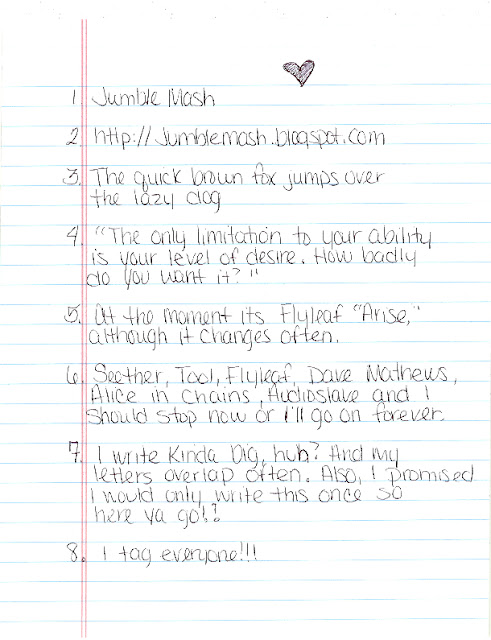 1. Jumble Mash
2. http://Jumblemash.blogspot.com
3. The quick brown fox jumps over
the lazy dog
4. "The only limitation to your ability
is your level of desire. How badly
do you want it?"
5. At the moment its Flyleaf "Arise,"
although it changes often.
6. Seether, Tool, Flyleaf, Dave Mathews,
Alice in Chains, Audioslave and I
should stop now or I'll go on forever.
7. I write kinda big, huh? And my
letters overlap often. Also, I promised
I would only write this once so
here ya go!?
8. I tag everyone!!!